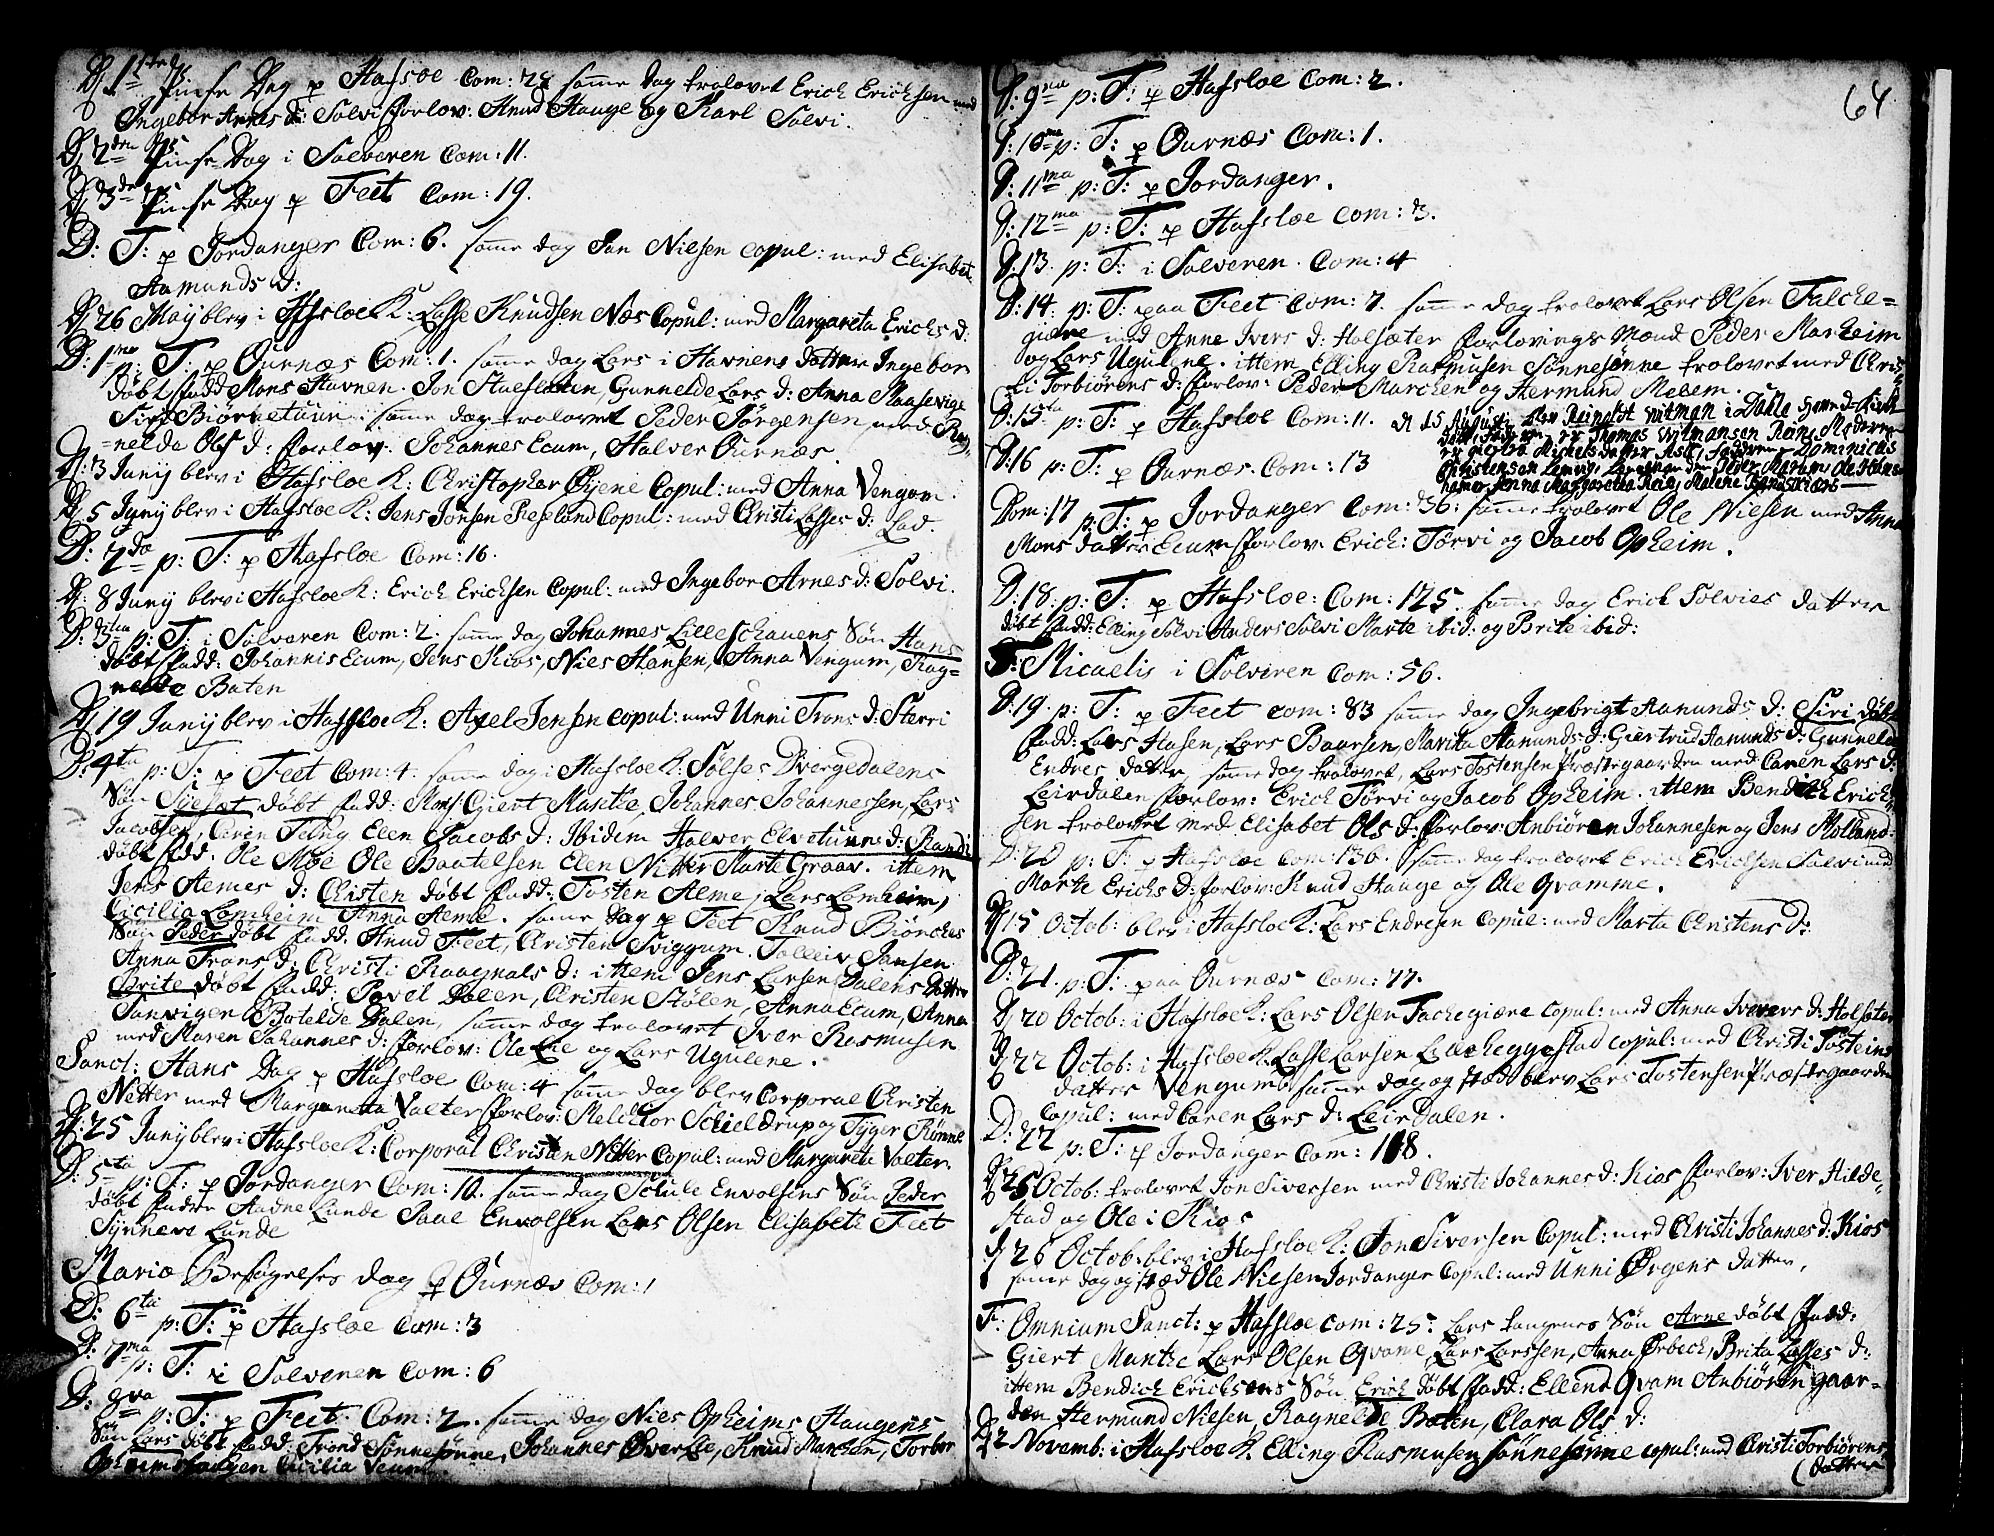 D: 1ste Pinse Dag p Hafsloe Com: 28 samme dag trolovet Erich Erichsen med
Ingebor Arnes d: Solvi forlov: Knud Hauge og Karl Solvi.
D: 2den Pinse Dag i Solveren Com: 11.
D: 3de Pinse Dag p Feet Com: 19.
D: T: p Jordanger Com: 6. samme dag Jan Nielsen copul: med Elisabet
Aamunds d:
D. 26 Maij blev i Hafsloe K: Lasse Knudsen Næs Copul: med Margareta Erichs d:
D: 1ma p: T: p Ournæs Com: 1. samme dag Lars i Havnens datter Ingebor
döbt fadd Mons Havnen. Jon Gunnelde Lars d: Anna
Siri Biörnetuun. samme dag trolovet Peder Jörgensen med Rag-
nelde Ols d: forlov: Johannes Ecum, Halver Ournæs.
D: 3 Junij blev i Hafsloe K: Christopher Öyene Copul: med Anna Vengum.
D. 5 Junij blev i Hafsloe K: Jens Jonsen Copul: med Christi Lasses d: Lad.
D: 2da p: T: p Hafsloe Com: 16.
D: 8 Junij blev i Hafsloe K: Erich Erichsen Copul: med Ingebor Arnes d: Solvi.
D: 3tia p: T: i Solveren Com: 2. samme dag Johannes Lilleschauens Sön Hans
döbt fadd: Johannis Ecum, Jens Kios, Niels Hansen, Anna Vengum, Rag-
nelde Baten
D. 19 Junij blev i Hafsloe K: Axel Jensen copul: med Unni Trons d: Sterri
D: 4ta p: T: p Feet Com: 4. samme dag i Hafsloe K: Sölfes Dvergedalens
Sön döbt fadd: Giert Munthe Johannes Johannessen, Lars
Jacobsen, Caren Elen Jacobs d: Ibidem Halver Elvetuns d: Randi
döbt fadd. Ole Moe Ole Baatelsen Elen Nitter Marte Graav. ittem
Jens Aemes d: Christen döbt fadd: Tosten Aeme, Lars Lomheim,
Cicilia Lomheim Anna Aeme. samme dag p Feet Knud Biörches
Sön Peder döbt fadd. Knud Feet, Christen Sviggum. Tolleiv Jansen
Anna Trons d: Christi Raagnals d: ittem Jens Larsen Dalens datter
Brite döbt fadd: Povel Dalen, Christen Stölen, Anna Ecum, Anna
Sanvigen Botelde Dalen, samme dag trolovet Iver Rasmusen
med Maren Johannes d: forlov: Ole Lie og Lars Ugulene.
Sanct: Hans Dag p Hafsloe Com: 4 samme dag blev Corporal Christen
Netter med Margareta Valter forlov: Melchior Schieldrup og Tyger Rönne
D: 25 Junij blev i Hafsloe K: Corporal Christen Netter Copul: med Margareta Valter.
D: 5ta p: T: p Jordanger Com: 10. samme dag Schule Envolsens Sön Peder
döbt fadde Aadne Lunde Paul Envolsen Lars Olsen Elisabeth Feet
Synneve Lunde
Mariæ Besögelses dag p Ournæs Com: 1
D: 6ta p: T: p Hafsloe Com: 3
D: 7ma p: T: i Solveren Com: 6
D: 8va p: T: p Feet. Com: 2. samme dag Niels Opheims Haugens
Sön Lars döbt fadd: Trond Sönnesönne, Johannes Överlie, Knud Marchen, Torbor
Opheimshaugen Cicilia Veum.
64
D: 9na p: T: p Hafsloe Com: 2.
D: 10ma p: T: p Ournæs Com: 1.
D: 11ma p: T: p Jordanger.
D: 12ma p: T: p Hafsloe Com: 3.
D: 13. p: T: i Solveren. Com: 4
D: 14. p: T: paa Feet Com: 7. samme dag trolovet Lars Olsen Talche-
giære med Anne Ivers d: Holsæter forlovings Mænd Peder Marheim
og Lars Ugulene. ittem Elling Rasmusen Sönnesönne trolovet med Chris-
ti Torbiörens d: forlov: Peder Marchen og Hermund Melem.
D: 15ta p: T: p Hafsloe Com: 11. d 15 Augusti blev Reinholt Vitman i Dahle
döbt Faderen er Thomas Vitmansen Moderen
er Michels datter fadderne Dominicus
Christensen Peder Marum, Ole Hansen
Anna Margaretha Malene
D: 16 p: T: p Ournæs. Com: 13
Dom: 17 p: T: p Jordanger Com: 36: samme trolovet Ole Nielsen med Anna
Mons datter Ecum forlov. Erich: Törvi og Jacob Opheim.
D: 18. p: T: p Hafsloe: Com: 125. samme dag Erich Solvies datter
döbt fadd: Elling Solvi Anders Solvi Marte ibid: og Brite ibid:
F: Micaelis i Solveren Com: 56.
D: 19. p: T: p Feet com: 83 samme dag Ingebrigt Aamunds d: Siri döbt
fadd: Lars Hasen, Lars Baarsen, Marita Aamunds d: Giertrud Aamunds d: Gunnelde
Endres datter, samme dag trolovet, Lars Tostensen Præstegaarden med Caren Lars d:
Leirdalen forlov: Erich Törvi og Jacob Opheim. ittem Bendich Erich-
sen trolovet med Elisabet Ols d: forlov: Anbiören Johannesen og Jens Molland:
D: 20 p: T: p Hafsloe Com: 136. samme dag trolovet Erich Erichsen Solvi med
Marte Erichs d: forlov: Knud Hauge og Ole Qvamme.
D. 15 Octob: blev i Hafsloe K: Lars Endresen Copul: med Marta Christens d:
D: 21. p: T: paa Ournæs Com: 77.
D. 20 Octob: i Hafsloe K: Lars Olsen Tachegiære copul: med Anna Ivers d: Holsæter
D. 22 Octob: i Hafsloe K: Lasse Larsen Lilleheggestad copul: med Christi Tosteins
datter Vengum samme dag og stæd blev Lars Tostensen Præstegaarden
Copul: med Caren Lars d: Leirdalen.
D: 22 p: T: p Jordanger Com: 118.
D. 25 Octob: trolovet Jon Siversen med Christi Johannes d: Kios forlov: Iver Hilde-
stad og Ole i Kios
d: 26 Octob: blev i Hafsloe K: Jon Siversen Copul: med Christi Johannes d: Kios
samme dag og stæd Ole Nielsen Jordanger Copul: med Unni Örgens datter.
F: Omnium Sanct: p Hafsloe com: 25: Lars Tangenes Sön Arne döbt fadd:
Giert Munthe Lars Olsen Qvame, Lars Larssen, Anna Örbech, Brita Lasses d:
ittem Bendich Erichsens Sön Erich döbt fadd: Ellend Qvam Anbiören gaar-
den Hermund Nielsen, Ragnelde Baten, Clara Ols d:
D. 2 Novemb: i Hafsloe K. Elling Rasmusen sönnesönne copul: med Christi Torbiörens
(datter